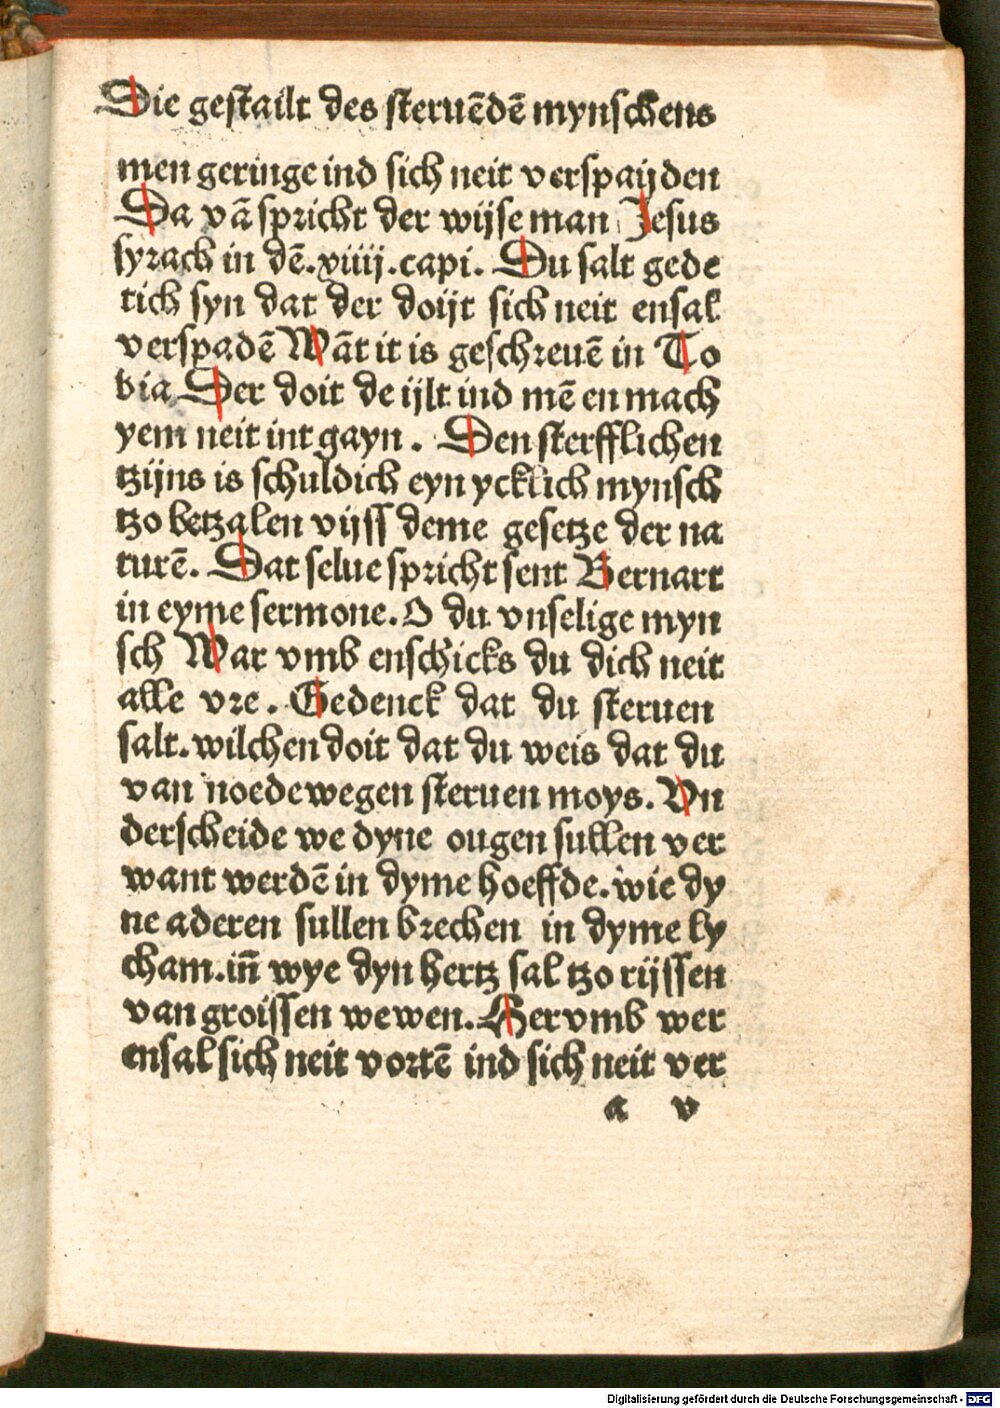 Die gestailt des steruēdē mynschens
men geringe ind sich neit verspaijden
Da vā spricht der wijse man Jesus
syrach in dē.xiiij.capi. Du salt gede
tich syn dat der doijt sich neit ensal
verspadē Wāt it is geschreuē in To
bia Der doit de ijlt ind mē en mach
yem neit int gayn. Den sterfflichen
tzijns is schuldich eyn ycklich mynsch
tzo betzalen vijss deme gesetze der na
turē. Dat selue spricht sent Bernart
in eyme sermone. O du vnselige myn
sch War vmb enschicks du dich neit
alle vre. Gedenck dat du steruen
salt. wilchen doit dat du weis dat du
van noede wegen steruen moys. Vn
derscheide we dyne ougen sullen ver
want werdē in dyme hoeffde. wie dy
ne aderen sullen brechen in dyme ly
cham. iñ wye dyn hertz sal tzo rijssen
van groissen wewen. Her vmb wer
ensal sich neit vortē ind sich neit ver
a v
Digitalisierung gefördert durch die Deutsche Forschungsgemeinschaft - DFG